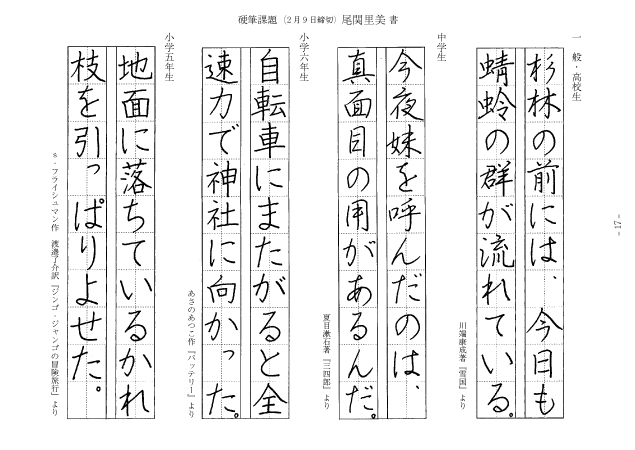 硬筆課題（2月9日締切）尾関里美 書
一般・高校生
杉林の前には、今日も
蜻蛉の群が流れている。
川端康成著『雪国』より
中学生
今夜妹を呼んだのは、
真面目の用があるんだ。
夏目漱石著『三四郎』より
小学六年生
自転車にまたがると全
速力で神社に向かった。
あさのあつこ作『バッテリー』より
小学五年生
地面に落ちているかれ
枝を引っぱりよせた。
s・フライシュマン作 渡邉了介訳『ジンゴ・ジャンゴの冒険旅行』より
- 17 -